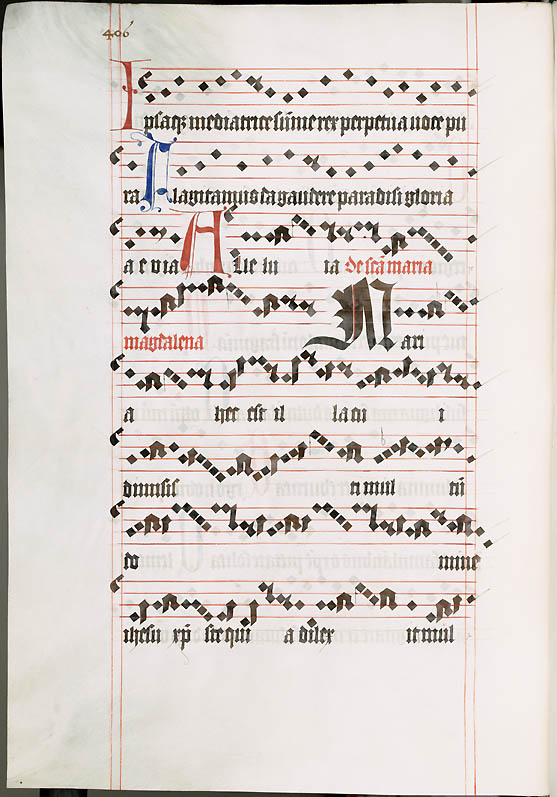 406
Ipsaq3 mediatrice sūme rex perpetua uoce pu
ra Flagitamus da gaudere paradisi gloria
a e v ia Alle lu ia de scā maria
magdalena Mari
a hec est il la cu i
dimissis ti mul tū
do mine
ihesu xp̄ ste qui a dilex it mul